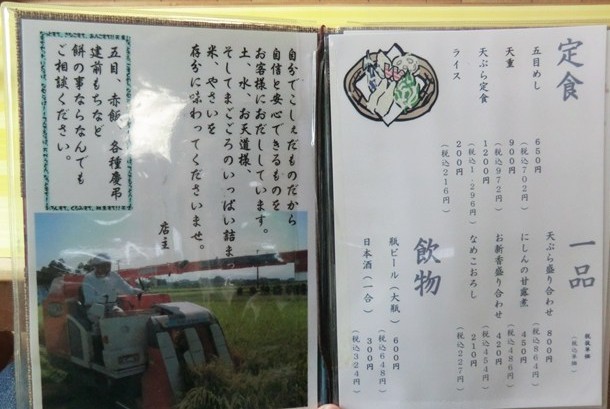 定食
五目めし
650円
(税込702円)
天重
900円
(税込972円)
天ぷら定食
1200円
(税込1,296円)
ライス
200円
(税込216円)
一品
税抜単価
(税込単価)
天ぷら盛り合わせ
800円
(税込864円)
にしんの甘露煮
450円
(税込486円)
お新香盛り合わせ
420円
(税込454円)
なめこおろし
210円
(税込227円)
飲物
瓶ビール(大瓶)
600円
(税込648円)
日本酒(一合)
300円
(税込324円)
自分でこしぇだものだから
自信と安心できるものを
お客様におだししています。
土、水、お天道様、
そしてまごころのいっぱい詰まっ
米、やさいを
存分に味わってくださいませ。
店主
五目、赤飯、各種慶弔
建前もちなど
餅の事ならなんでも
ご相談ください。